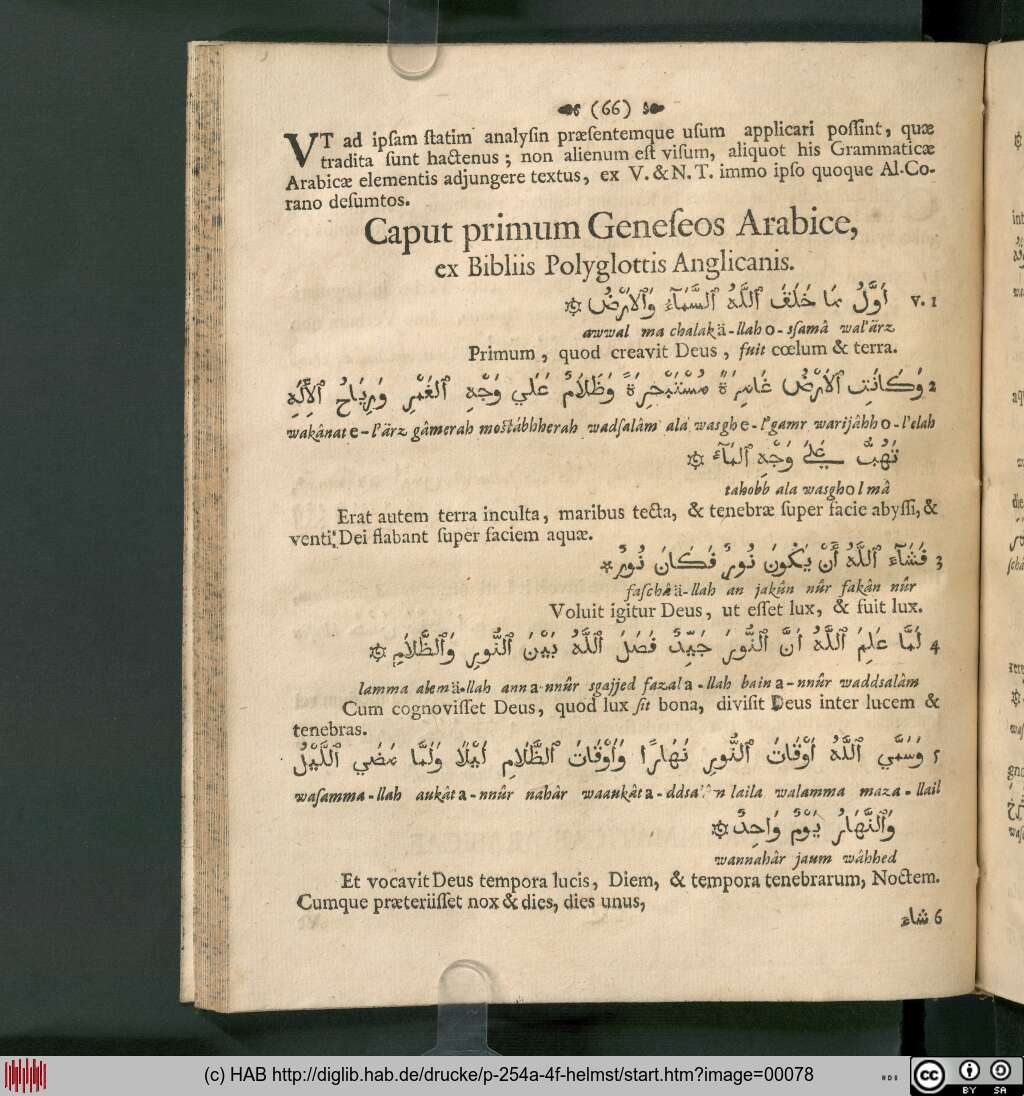 (66)
VT ad ipsam statim analysin præsentemque usum applicari possint, quæ
tradita sunt hactenus; non alienum est visum, aliquot his Grammaticæ
Arabicæ elementis adjungere textus, ex V. & N. T. immo ipso quoque Al-Co-
rano desumtos.
Caput primum Geneseos Arabice,
ex Bibliis Polyglottis Anglicanis.
v. 1 أَوَّلُ مَا خَلَقَ ٱللَّهُ ٱلسَّمَآءُ وَٱلْأَرْضُ
awwal ma chalakä-llaho-ssamâ wal'ärz
Primum, quod creavit Deus, fuit cœlum & terra.
2 وَكَانَتِ ٱلْأَرْضُ غَامِرَةً مُسْتَبْحِرَةً وَظَلَامٌ عَلَي وَجْهِ ٱلْغَمْرِ وَرِيَاحُ ٱلْإِلَهِ
wakânate-l'ärz gâmerah mostábhherah wadsalâm ala wasghe-l'gamr warijâhho-l'elah
تَهُبُّ عَلَي وَجْهِ ٱلْمَآءِ
tahobb ala wasghol mâ
Erat autem terra inculta, maribus tecta, & tenebræ super facie abyssi, &
venti Dei flabant super faciem aquæ.
3 فَشَآءَ ٱللَّهُ أَنْ يَكُونَ نُورٌ فَكَانَ نُورٌ
faschâä-llah an jakûn nûr fakân nûr
Voluit igitur Deus, ut esset lux, & fuit lux.
4 لَمَّا عَلِمَ ٱللَّهُ أَنَّ ٱلنُّورَ جَيِّدٌ فَصَلَ ٱللَّهُ بَيْنَ ٱلنُّورِ وَٱلظَّلَامِ
lamma alemä-llah anna-nnûr sgajjed fazala-llah baina-nnûr waddsalâm
Cum cognovisset Deus, quod lux sit bona, divisit Deus inter lucem &
tenebras.
5 وَسَمَّي ٱللَّهُ أَوْقَاتَ ٱلنُّورِ نَهَارًا وَأَوْقَاتَ ٱلظَّلَامِ لَيْلًا وَلَمَّا مَضَي ٱللَّيْلُ
wasamma-llah aukâta-nnûr nahâr waaukâta-ddsa laila walamma maza-llail
وَٱلنَّهَارُ يَوْمٌ وَاحِدٌ
wannahâr jaum wâhhed
Et vocavit Deus tempora lucis, Diem, & tempora tenebrarum, Noctem.
Cumque præteriisset nox & dies, dies unus,
6 شاء
(c) HAB http://diglib.hab.de/drucke/p-254a-4f-helmst/start.htm?image=00078
cc BY SA